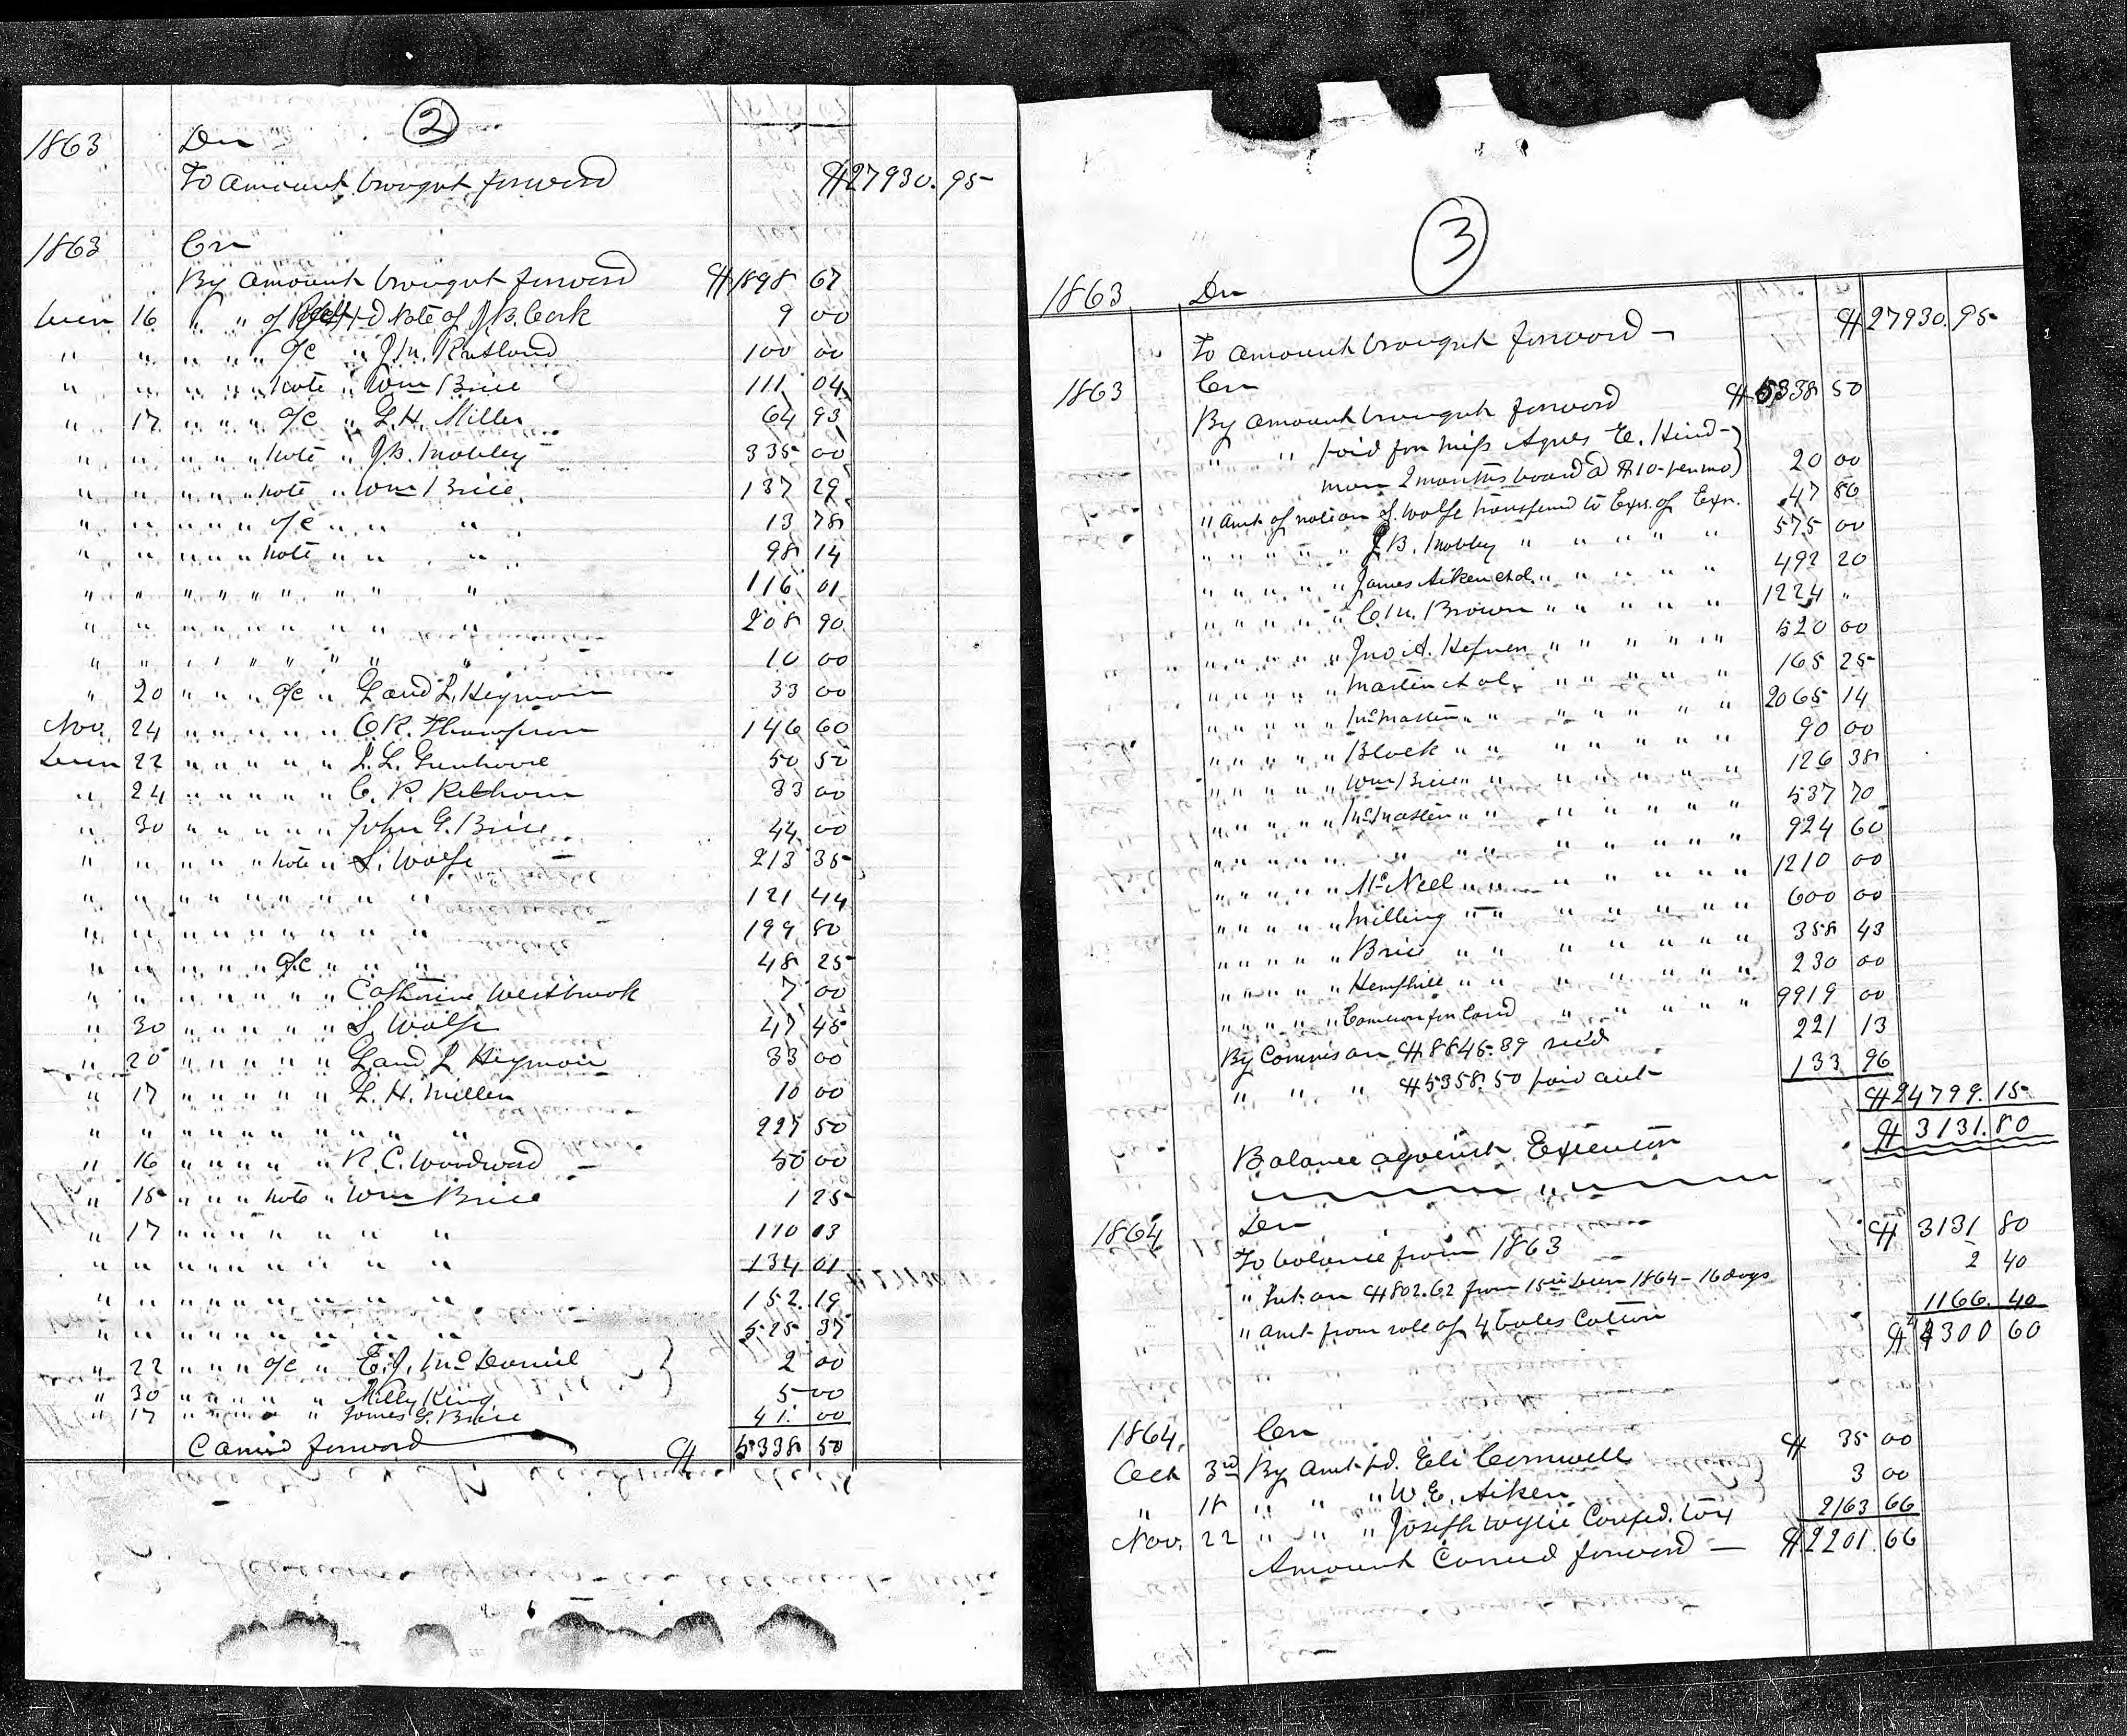 2
1863 Dr
To amount brought forward $27930.95
1863 Cr
By amount brought forward $1898 67
Decm 16 " " of Note of J.B. Cork 9 00
" " " " " a/c " J.M. Rutland 100 00
" " " " " note " Wm Brice 111 04
" 17 " " " a/c " L.H. Miller 64 93
" " " " " note " J.B. Mobley 335 00
" " " " " note " Wm Brice 137 29
" " " " " a/c " " " 13 78
" " " " " note " " " 98 14
" " " " " " " " " 116 01
" " " " " " " " " 208 90
" " " " " " " " " 10 00
" 20 " " " a/c " L and L. Heymon 33 00
Nov. 24 " " " " " C.R. Thompson 146 60
Decm 22 " " " " " 50 50
" 24 " " " " " C. P. 33 00
" 30 " " " " " John G. Brice 44 00
" " " " " note " S. Wolfe 213 35
" " " " " " " " " 121 44
" " " " " " " " " 199 80
" " " " " a/c " " " 48 25
" " " " " " " Catherine Westbrook 7 00
" 30 " " " " " S. Wolfe 47 45
" 20 " " " " " L and L Heymon 33 00
" 17 " " " " " L. H. Miller 10 00
" " " " " " " " " 227 50
" 16 " " " " " R.C. Woodward 50 00
" 15 " " " note " Wm Brice 1 25
" 17 " " " " " " " 110 03
" " " " " " " " " 134 01
" " " " " " " " " 152 19
" " " " " " " " " 525 37
" 22 " " " a/c " E.J. McDaniel 2 00
" 30 " " " " " Milly King 5 00
" 17 " " " " " James G. Brice 41 00
Carried forward $ 5338 50
3
1863 Dr
To amount brought forward $27930.95
1863 Cr
By amount brought forward $5338 50
" " paid for Miss Agnes E. Hind-
man 2 months board @ $10 per mo 20 00
" Amt of note on S. Wolfe transferred to Exrs. of Exr. 47 80
" " " " " J.B. Mobley " " " " " 575 00
" " " " " James Aiken et al. " " " " " 492 20
" " " " " C.M. Brown " " " " " 1224 "
" " " " " Jno. A. " " " " " 520 00
" " " " " Martin et al. " " " " " 165 25
" " " " " McMaster " " " " " " " 2065 14
" " " " " Block " " " " " " " 90 00
" " " " " Wm Brice " " " " " " " 126 38
" " " " " McMaster " " " " " " " 537 70
" " " " " " " " " " " " " 924 60
" " " " " McNeel " " " " " " " 1210 00
" " " " " Milling " " " " " " " 600 00
" " " " " Brice " " " " " " " 358 43
" " " " " Hemphill " " " " " " " 230 00
" " " " " Cameron for land " " " " " 9919 00
By Commis on $8845.39 recd 221 13
" " " $5358.50 paid out 133 96
$24799.15
Balance against Executor $3131.80
1864 Dr
To balance from 1863 $ 3131 80
" Int. on $802.62 from 15th Decm 1864 - 16 days 2 40
" Amt from sale of 4 bales Cotton 1166.40
$ 4300 60
1864. Cr
Oct 3rd By Amt pd. Eli Cornwell $ 35 00
" 18 " " " W.E. Aiken 3 00
Nov. 22 " " " Joseph Wylie Confed. tax 2163 66
Amount Carried forward — $2201.66